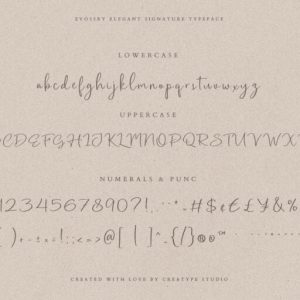 ZVOISBY ELEGANT SIGNATURE TYPEFACE
LOWERCASE
abcdefghijklmnopqrstuvwxyz
UPPERCASE
CDEFGHIJKLMNOPQRSTUVWX
NUMERALS & PUNC
1234567890?!
#$¢£¥%
)+-±=!:;<=>@[|]^_{/}®©™
CREATED WITH LOVE BY CREATYPE STUDIO